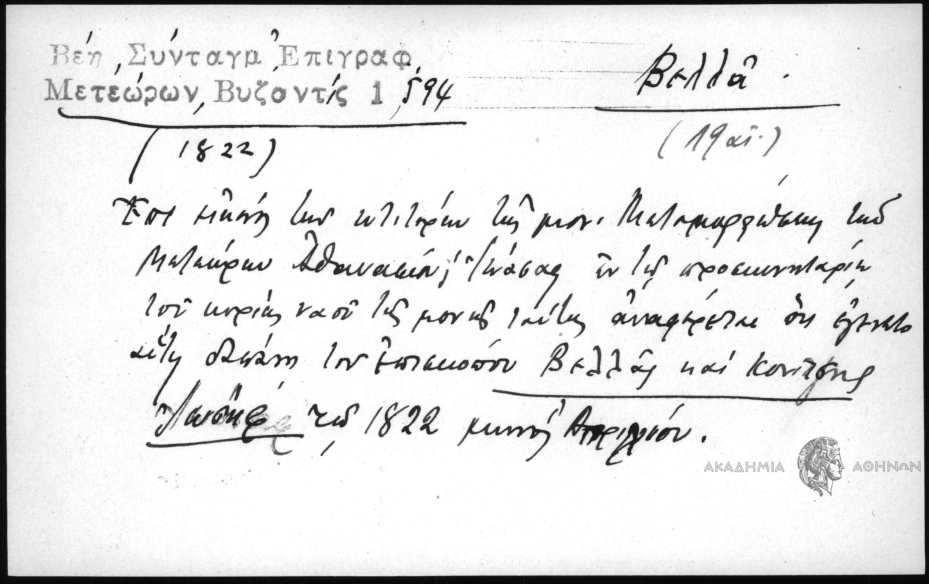 Βέη, Σύνταγμ Ἐπιγραφ.
Μετεώρων, Βυζαντίς 1, 594
Βελλᾶ.
(1822)
(19 αἰ.)
Ἐπὶ εἰκόνος τῶν κτιτόρων τῆς μον. Μεταμορφώσεως τοῦ
Μετεώρου Ἀθανασίου, Ἰωάσαφ ἐν τῷ προσκυνηταρίῳ
τοῦ κυρίως ναοῦ τῆς μονῆς ταύτης ἀναφέρεται ὅτι ἐγένετο
αὕτη δαπάνῃ τοῦ ἐπισκόπου Βελλᾶς καὶ Κονίτσης
Ἰωσὴφ τῷ 1822 μηνὸς Ἀπριλίου.
ΑΚΑΔΗΜΙΑ ΑΘΗΝΩΝ